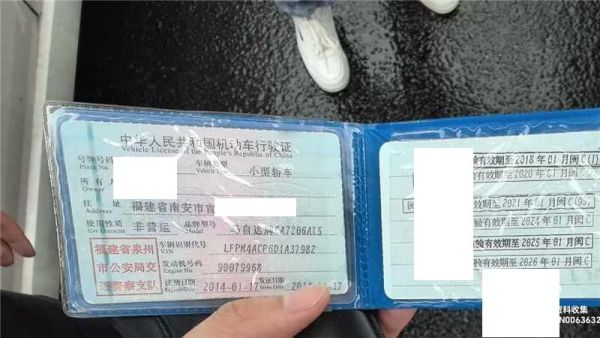 中华人民共和国机动车行驶证
Vehicle License of the People's Republic of China
号牌号码
车辆类型 小型轿车
Vehicle Type
所有人
Owner
住址 福建省南安市官
Address
使用性质 非营运 品牌型号 自达牌CA7206AT5
Use Character Model
福建省泉州
市公安局交
通警察支队
车辆识别代号 LFPM4ACP6D1A37982
VIN
发动机号码 90079968
Engine No.
注册日期 2014-01-17 发证日期
Issue Date
验有效期至2018年01月闽C
验有效期至2020年01月闽C
验有效期至2021年01月闽C
验有效期至2024年01月闽C
验有效期至2025年01月闽C
验有效期至2026年01月闽C
料收集
N0063632